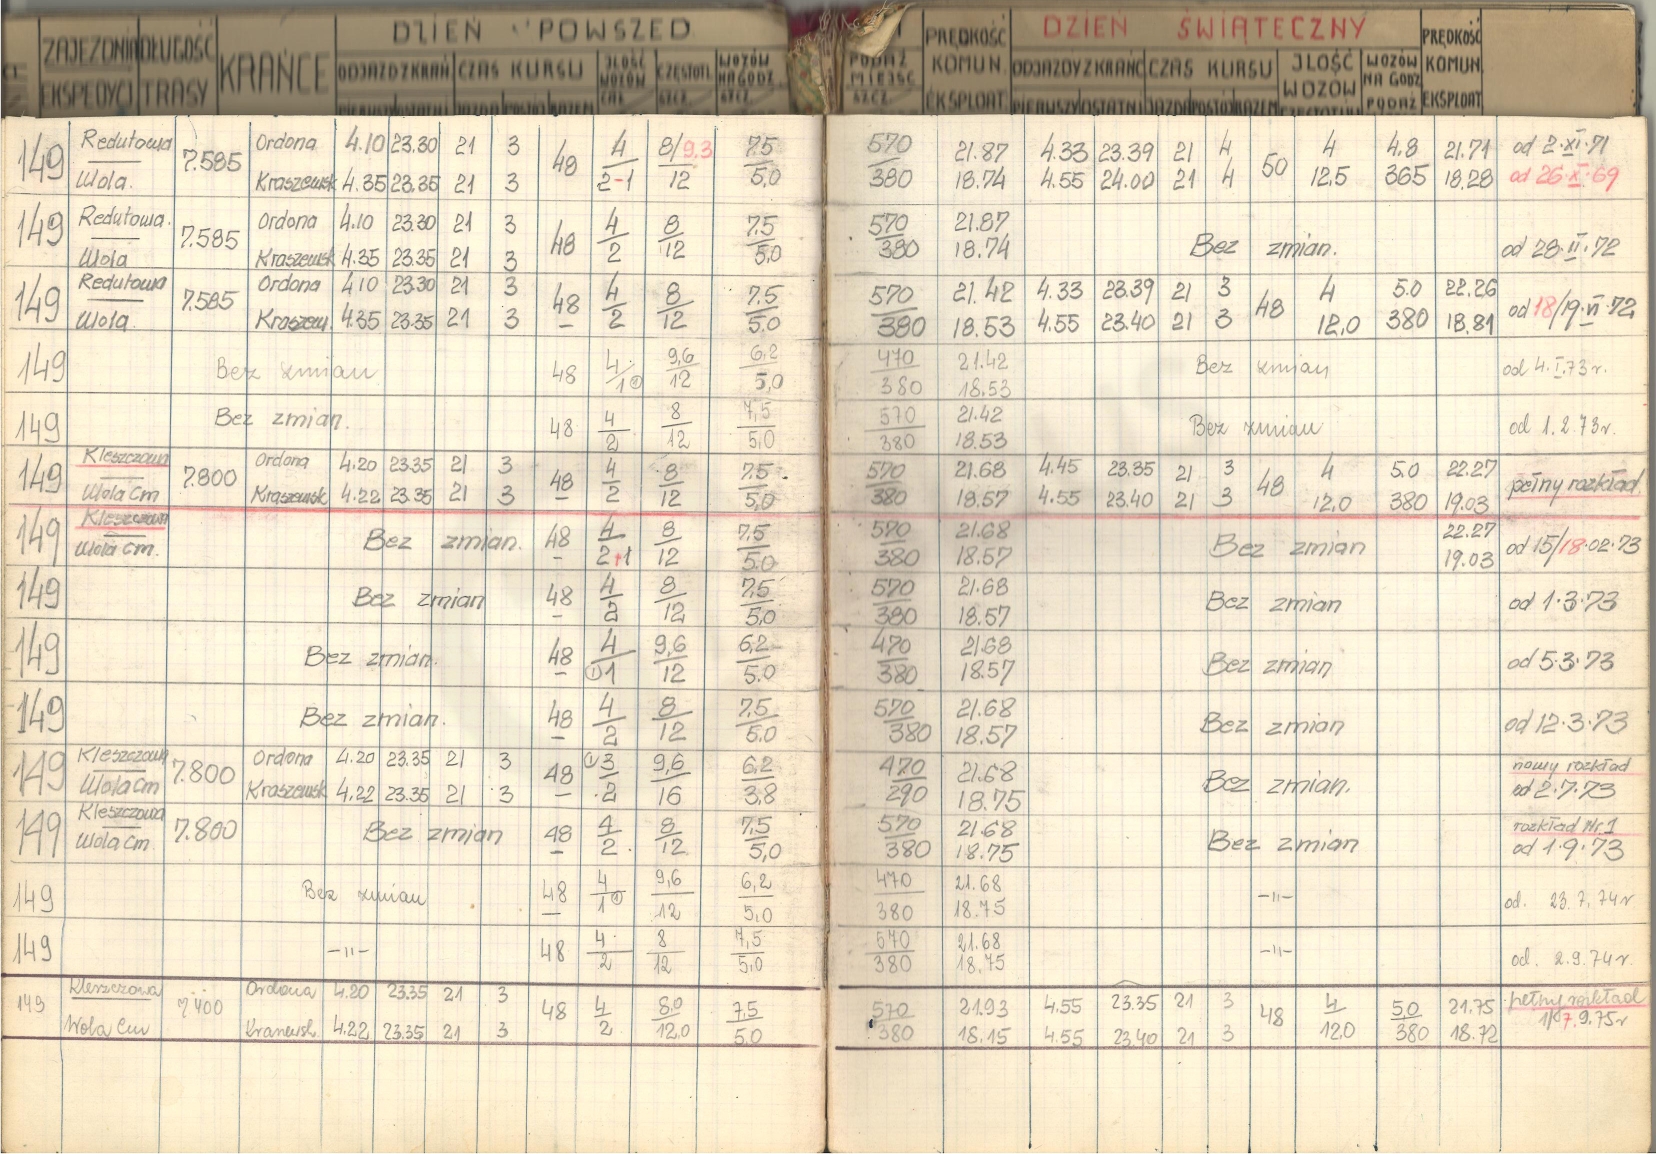 ZAJEZDNIA DŁUGOŚĆ KRAŃCE DZIEŃ POWSZED
EKSPEDYCJ TRASY ODJAZDY Z KRAŃ CZAS KURSU ILOŚĆ WOZÓW CZĘSTOTL WOZÓW NA GODZ.
PIERWSZY OSTATNI JAZDA POSTÓJ RAZEM CAŁ. SZCZ. SZCZ.
PODAŻ MIEJSC SZCZ. PRĘDKOŚĆ KOMUN. EKSPLOAT. DZIEŃ ŚWIĄTECZNY PRĘDKOŚĆ KOMUN. EKSPLOAT.
ODJAZDY Z KRAŃC CZAS KURSU ILOŚĆ WOZÓW WOZÓW NA GODZ
PIERWSZY OSTATNI JAZDA POSTÓJ RAZEM CZĘSTOTL PODAŻ
149 Redutowa 7.585 Ordona 4.10 23.30 21 3 48 4 8/9,3 7,5 570 21.87 4.33 23.39 21 4 50 4 4,8 21.71 od 2.XI.71
Wola. Kraszewsk 4.35 23.35 21 3 2-1 12 5,0 380 18.74 4.55 24.00 21 4 12,5 365 18,28 od 26.X.69
149 Redutowa. 7.585 Ordona 4.10 23.30 21 3 48 4 8 7,5 570 21.87
Wola Kraszewsk 4.35 23.35 21 3 2 12 5,0 380 18.74 Bez zmian. od 28.II.72
149 Redutowa 7.585 Ordona 4.10 23.30 21 3 48 4 8 7.5 570 21.42 4.33 23.39 21 3 48 4 5.0 22.26 od 18/19.VI.72
Wola. Kraszew. 4.35 23.35 21 3 2 12 5.0 380 18.53 4.55 23.40 21 3 12,0 380 18,81
149 Bez zmian 48 4 9,6 6,2 470 21.42 Bez zmian od 4.I.73r.
1① 12 5,0 380 18.53
149 Bez zmian. 48 4 8 7,5 570 21.42 Bez zmian od 1.2.73r.
2 12 5,0 380 18.53
149 Kleszczown 7.800 Ordona 4.20 23.35 21 3 48 4 8 7.5 570 21.68 4.45 23.35 21 3 48 4 5.0 22.27 pełny rozkład
Wola Cm Kraszewsk 4.22 23.35 21 3 2 12 5,0 380 18.57 4.55 23.40 21 3 12,0 380 19.03
149 Kleszczown Bez zmian. 48 4 8 7.5 570 21.68 Bez zmian 22.27 od 15/18.02.73
Wola Cm. 2+1 12 5.0 380 18.57 19.03
149 Bez zmian 48 4 8 7,5 570 21.68 Bez zmian od 1.3.73
2 12 5,0 380 18.57
149 Bez zmian. 48 4 9,6 6,2 470 21.68 Bez zmian od 5.3.73
①1 12 5.0 380 18.57
149 Bez zmian. 48 4 8 7,5 570 21.68 Bez zmian od 12.3.73
2 12 5.0 380 18.57
149 Kleszczown 7.800 Ordona 4.20 23.35 21 3 48 ①3 9,6 6,2 470 21.68 Bez zmian. nowy rozkład
Wola Cm Kraszewsk 4.22 23.35 21 3 2 16 3,8 290 18.75 od 2.7.73
149 Kleszczowa 7.800 Bez zmian 48 4 8 7,5 570 21.68 Bez zmian rozkład Nr.1
Wola Cm 2 12 5,0 380 18.75 od 1.9.73
149 Bez zmian 48 4 9,6 6,2 470 21.68 -"- od. 23.7.74r
1① 12 5,0 380 18.75
149 -"- 48 4 8 7,5 570 21.68 -"- od. 2.9.74r.
2 12 5,0 380 18.75
149 Kleszczowa 7.400 Ordona 4.20 23.35 21 3 48 4 8,0 7,5 570 21.93 4.55 23.35 21 3 48 4 5,0 21.75 pełny rozkład
Wola Cm 4.22 23.35 21 3 2 12,0 5.0 380 18.15 4.55 23.40 21 3 12,0 380 18.72 7.9.75r